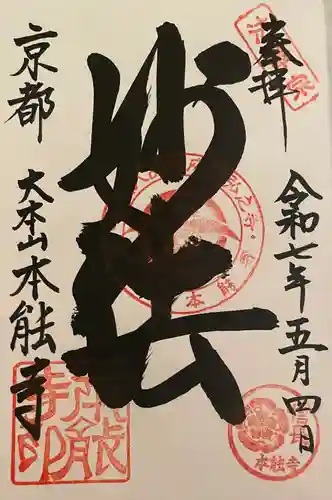 奉拝
令和七年五月四日
妙法
京都
大本山本能寺
本能寺印
本能寺